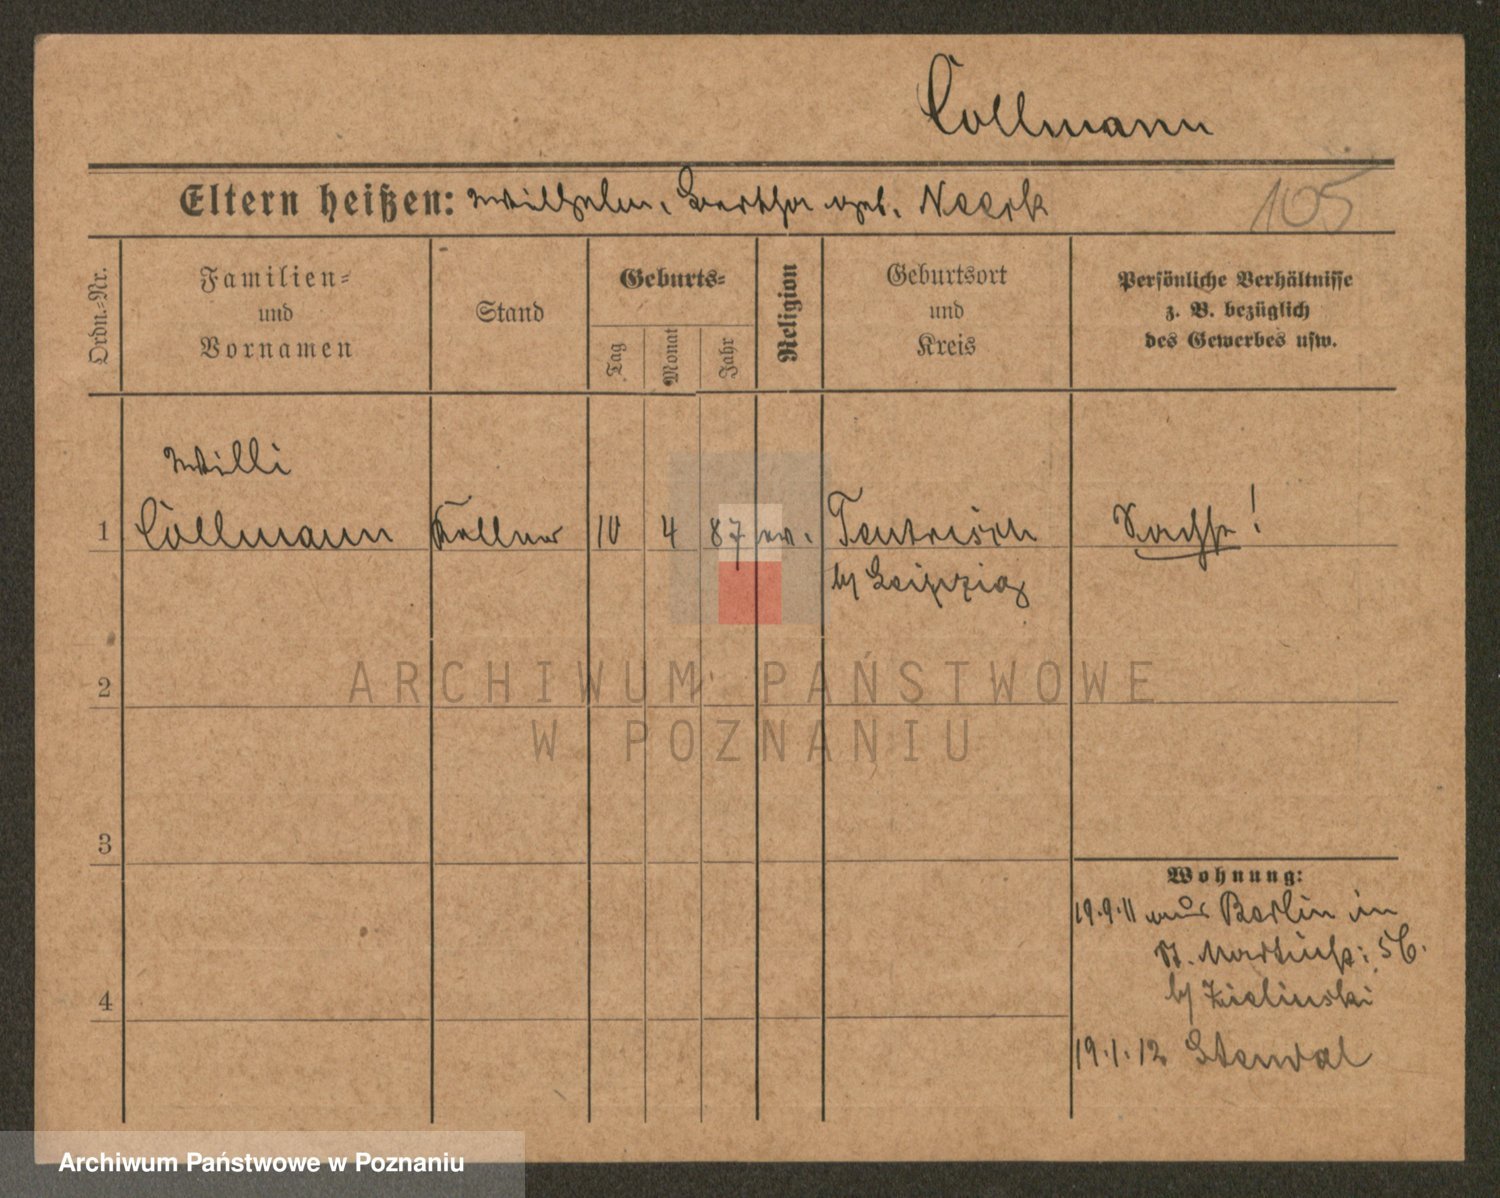 Collmann
Eltern heißen: Wilhelm, Bertha geb. Naack
105
Ordn.-Nr.
Familien-
und
Vornamen
Stand
Geburts-
Tag
Monat
Jahr
Religion
Geburtsort
und
Kreis
Persönliche Verhältnisse
z. B. bezüglich
des Gewerbes usw.
Willi
1 Collmann Kellner 10 4 87 ev. Sachse!
b/ Leipzig
2
3
4
Wohnung:
19.9.11 aus Berlin in
St. Martinstr. 56.
b/ Zielinski
19.1.12 Stendal
ARCHIWUM PAŃSTWOWE
W POZNANIU
Archiwum Państwowe w Poznaniu